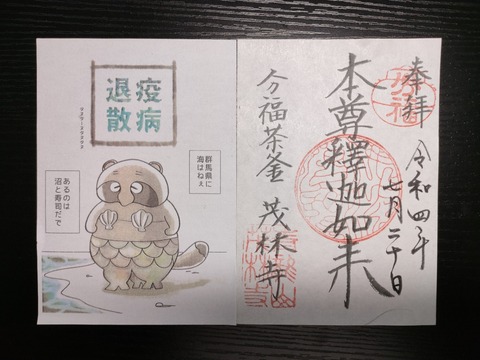 疫病
退散
群馬県に
海はねぇ
あるのは
沼と寿司だで
奉拝
令和四年
七月二十日
本尊釋迦如来
分福茶釜 茂林寺
分福